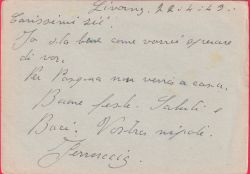 Livorno, 22-4-43.
Carissimi zii.
Io sto bene come vorrei sperare
di voi.
Per Pasqua non verrò a casa.
Buone feste. Saluti e
Baci. Vostro nipote.
Ferruccio